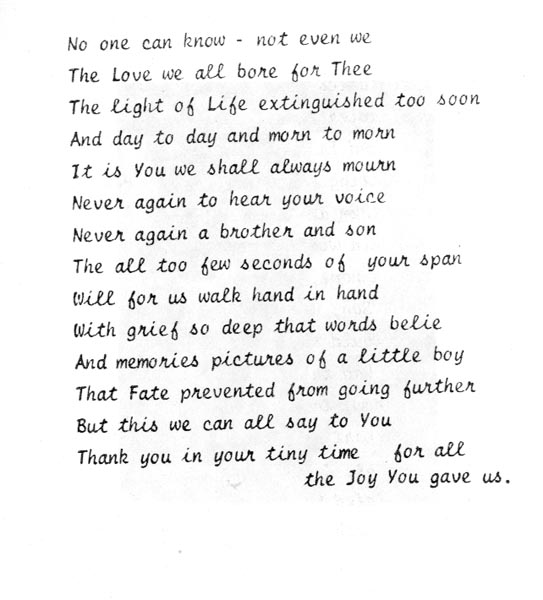 No one can know - not even we
The Love we all bore for Thee
The light of Life extinguished too soon
And day to day and morn to morn
It is You we shall always mourn
Never again to hear your voice
Never again a brother and son
The all too few seconds of your span
Will for us walk hand in hand
With grief so deep that words belie
And memories pictures of a little boy
That Fate prevented from going further
But this we can all say to You
Thank you in your tiny time for all
the Joy You gave us.